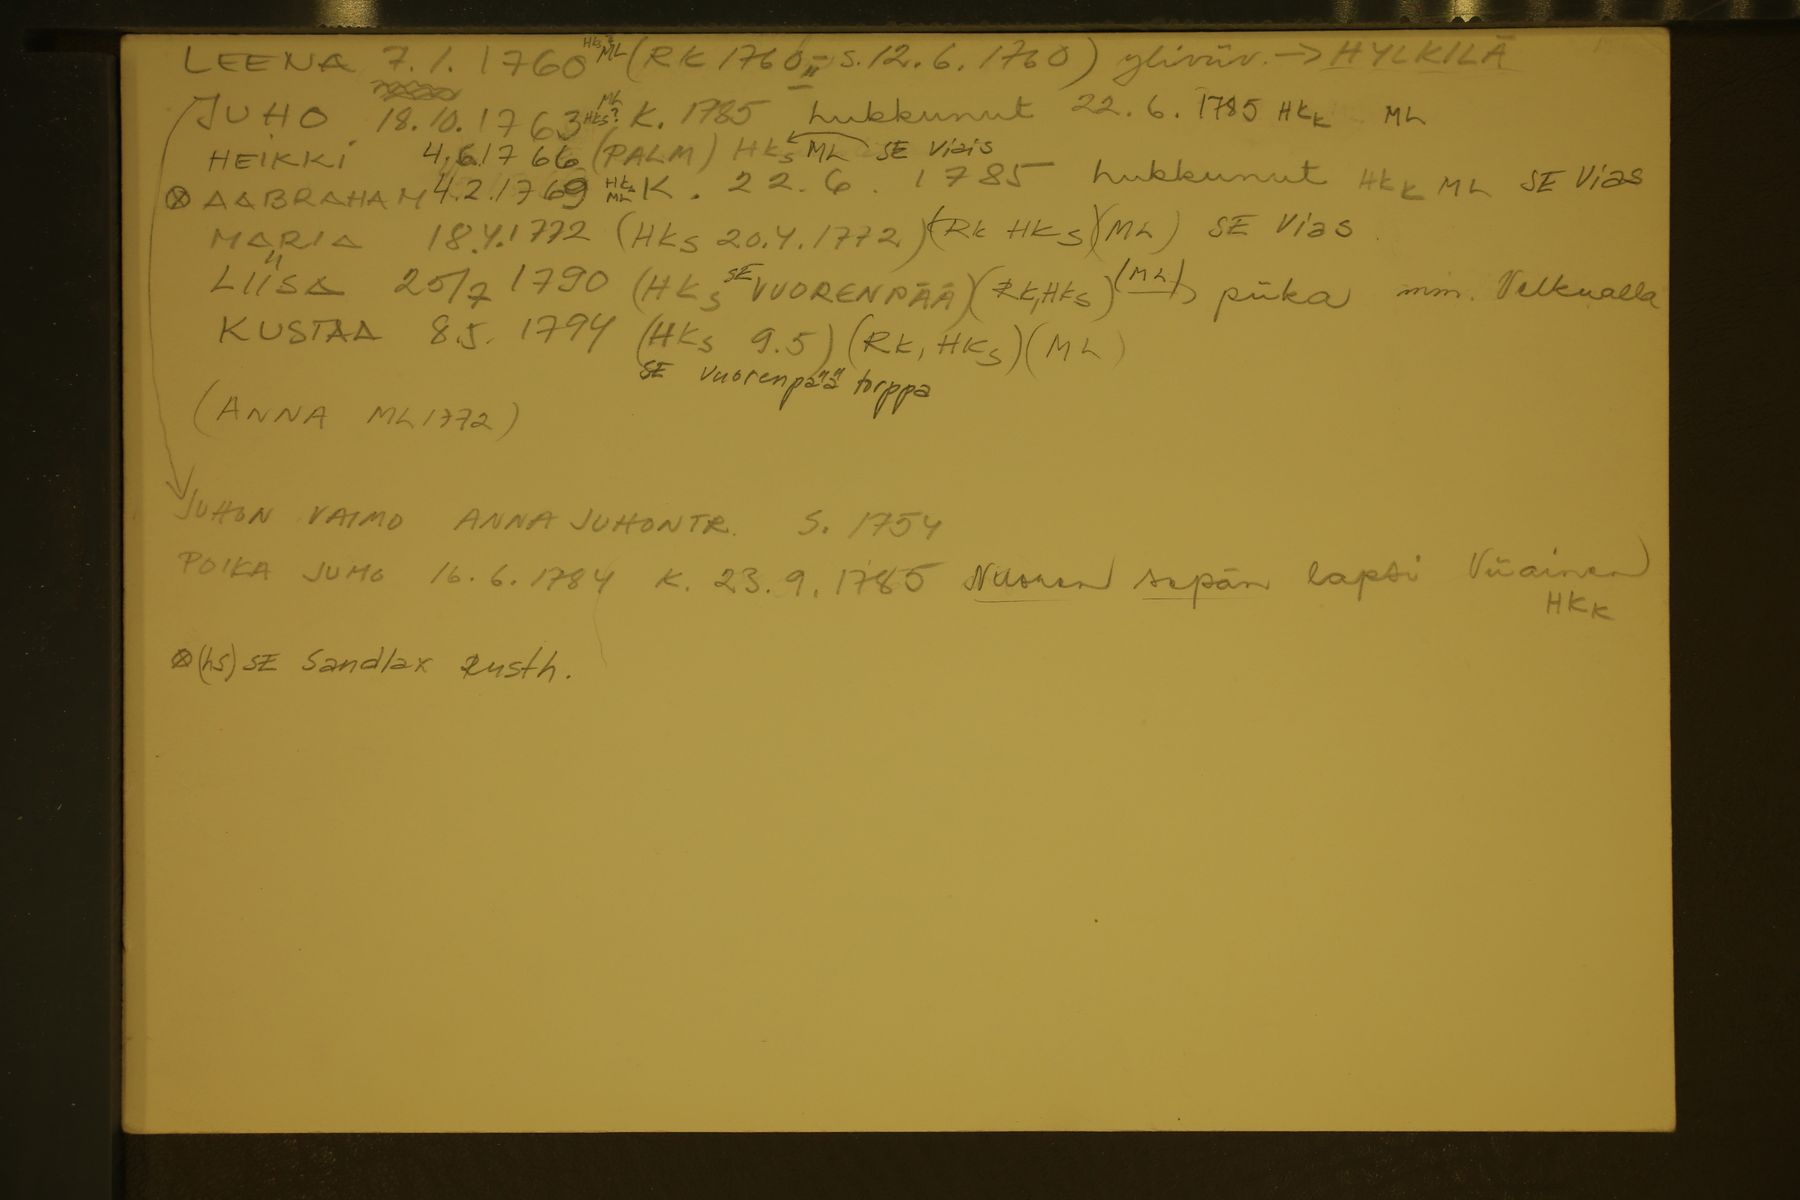 LEENA 7.1.1760 HKs ML (RK 1760 - s. 12.6.1760) yliviiv. → HYLKILÄ
JUHO 18.10.1763 ML HKs? K. 1785 hukkunut 22.6.1785 HKK ML
HEIKKI 4.6.1766 (PALM) HKs ML SE Viais
⊗ AABRAHAM 4.2.1769 HKs ML K. 22.6.1785 hukkunut HKK ML SE Vias
MARIA 18.4.1772 (HKs 20.4.1772) (RK HKs) (ML) SE Vias
LIISA 25/7 1790 (HKs SE VUORENPÄÄ) (RK, HKs) (ML) piika mm. Velkualla
KUSTAA 8.5. 1794 (HKs 9.5) (RK, HKs) (ML)
SE Vuorenpää torppa
(ANNA ML 1772)
JUHON VAIMO ANNA JUHONTR. S. 1754
POIKA JUHO 16.6.1784 K. 23.9.1785 Nuoren sepän lapsi Viiainen
HKK
⊗ (hs) SE Sandlax Rusth.